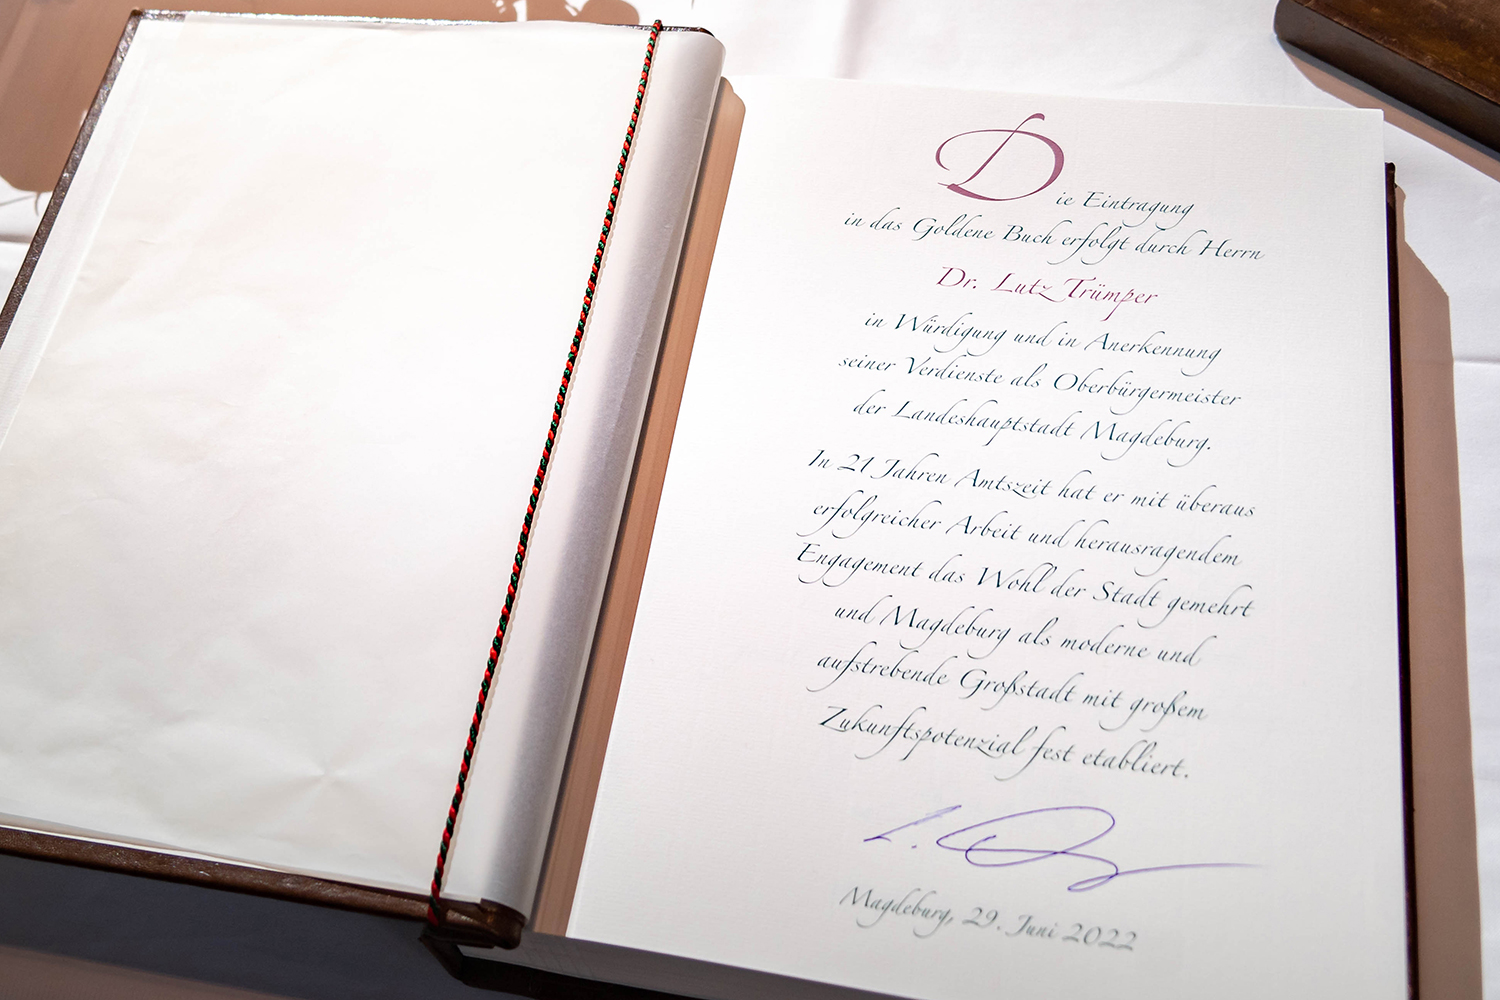 Die Eintragung
in das Goldene Buch erfolgt durch Herrn
Dr. Lutz Trümper
in Würdigung und in Anerkennung
seiner Verdienste als Oberbürgermeister
der Landeshauptstadt Magdeburg.
In 21 Jahren Amtszeit hat er mit überaus
erfolgreicher Arbeit und herausragendem
Engagement das Wohl der Stadt gemehrt
und Magdeburg als moderne und
aufstrebende Großstadt mit großem
Zukunftspotenzial fest etabliert.
Magdeburg, 29. Juni 2022